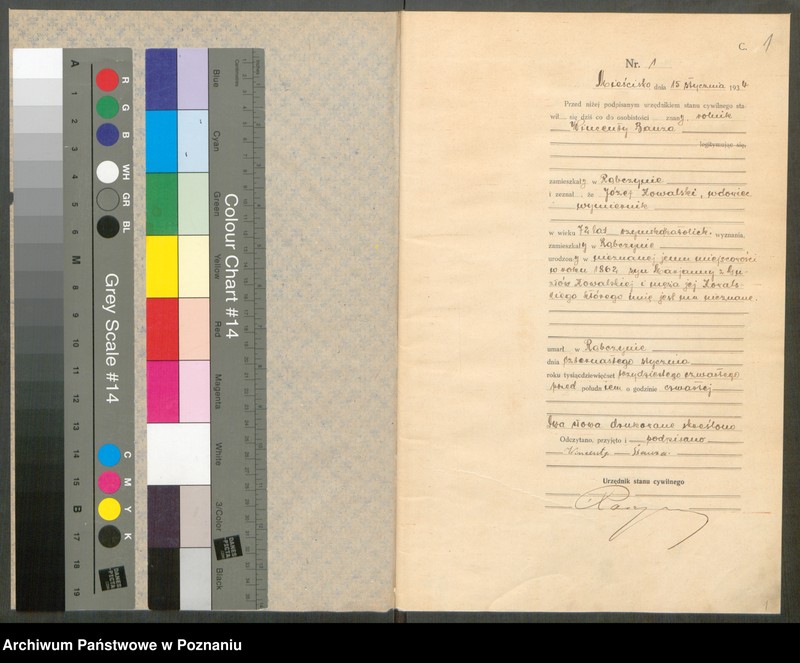 C. 1
Nr. 1
dnia 15 stycznia 1934
Przed niżej podpisanym urzędnikiem stanu cywilnego sta-
wił się dziś co do osobistości znany, rolnik
Wincenty
legitymując się
zamieszkały w Rąbczynie
i zeznał, że Józef Kowalski, wdowiec
wymiernik
w wieku 72 lat wyznania,
zamieszkały w Rąbczynie
urodzony w nieznanej jemu miejscowości
w roku 1862 syn Marjanny z
Kowalskiej i męża jej Kowals-
kiego którego imię jest mu nieznane.
umarł w Rąbczynie
dnia czternastego stycznia
roku tysiącdziewięćset trzydziestego czwartego
przed południem o godzinie czwartej
Dwa słowa drukowane skreślono
Odczytano, przyjęto i podpisano
Wincenty
Urzędnik stanu cywilnego
Colour Chart #14
Grey Scale #14
Blue
Cyan
Green
Yellow
Red
Magenta
White
3/Color
Black
R
G
B
WH
GR
BL
C
M
Y
K
A
1
2
3
4
5
6
M
8
9
10
11
12
13
14
15
B
17
18
19
DANES
PICTA
Archiwum Państwowe w Poznaniu